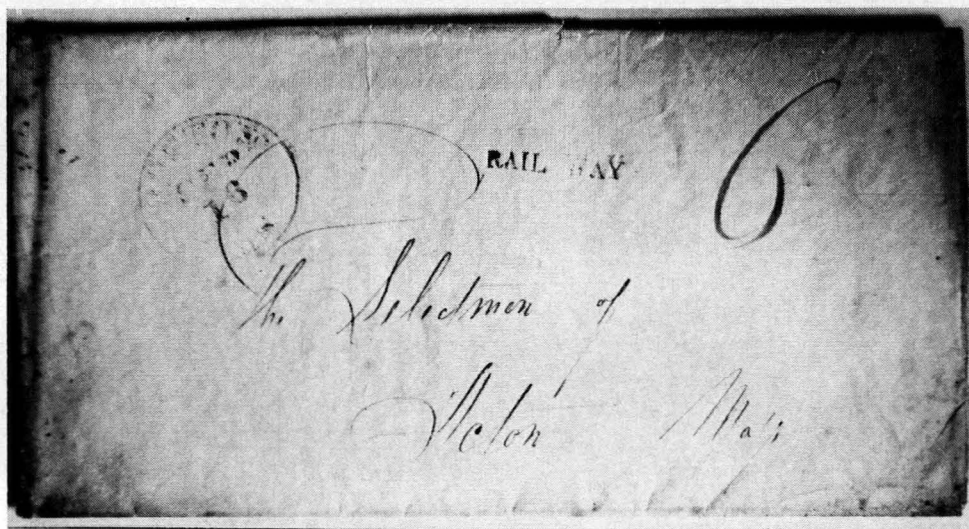 RAIL WAY
6
The Selectmen of
Acton Mass